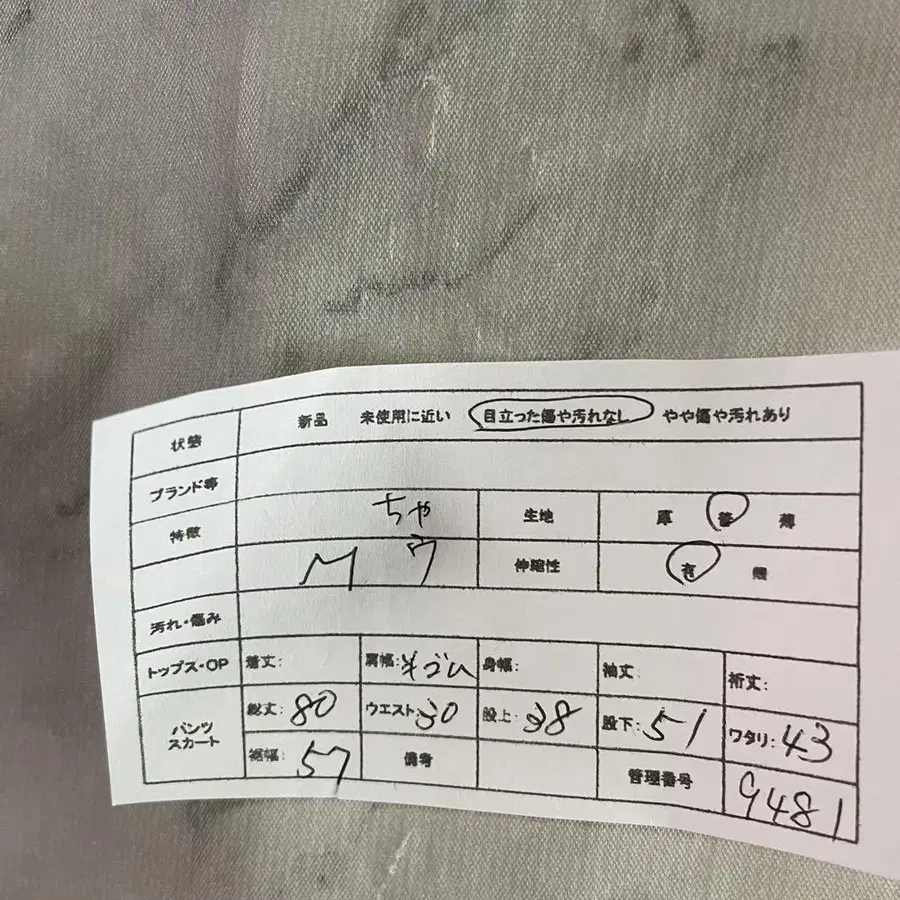 状態 新品 未使用に近い 目立った傷や汚れなし やや傷や汚れあり
ブランド等
特徴 ちゃ 生地 厚 普 薄
M ウ 伸縮性 有 無
汚れ・傷み
トップス・OP 着丈: 肩幅: 身幅: 袖丈: 裄丈:
パンツ スカート 総丈: 80 ウエスト: 30 股上: 38 股下: 51 ワタリ: 43
裾幅: 57 備考 管理番号 9481